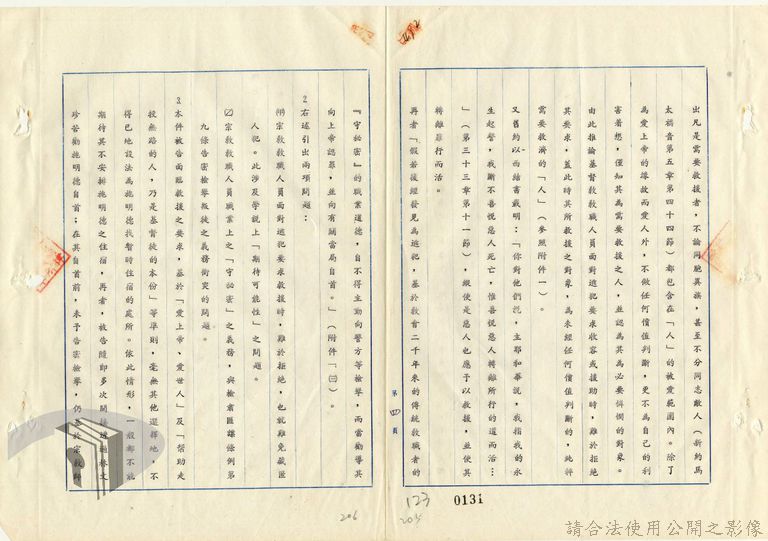 出凡是需要救援者,不論同胞異族,甚至不分同志敵人(新約馬
太福音第五章第四十四節)都包含在「人」的被愛範圍內。除了
為愛上帝的緣故而愛人外,不做任何價值判斷,更不為自己的利
害着想,僅知其為需要救援之人,並認為其為必要憐憫的對象。
由此推論基督教教職人員面對逃犯要求收容或援助時,難於拒絕
其要求,蓋此時其所救援之對象,為未經任何價值判斷的,此幹
需要救濟的「人」(參照附件一)。
又舊約以-西結書載明:「你對他們說,主耶和華說,我指我的永
生起誓,我斷不喜悅惡人死亡,惟喜悅惡人轉離所行的道而活…
」(第三十三章第十一節),縱使是惡人也應予以救援,並使其
轉離罪行而活。
再者「假若後經發見為逃犯,基於教會二千年來的傳統教職者的
第四頁
123
0131
205
『守祕密』的職業道德,自不得主動向警方等檢舉,而當勸導其
向上帝認罪,並向有關當局自首。」(附件「㈢」)。
2.右述引出兩項問題:
㈠宗教教職人員面對逃犯要求救援時,難於拒絕,也就難免藏匪
人犯。此涉及學說上「期待可能性」之問題。
㈡宗教教職人員職業上之「守祕密」之義務,與檢肅匪諜條例第
九條告密檢舉叛徒之義務衝突的問題。
3.本件被告面臨救援之要求,基於「愛上帝、愛世人」及「幫助走
投無路的人,乃是基督徒的本份」等準則,毫無其他選擇地,不
得已地設法為施明德找暫時住宿的處所。依此情形,一般都不能
期待其不安排施明德之住宿,再者,被告隨即多次間接透過林文
珍苦勸施明德自首;在其自首前,未予告密檢舉,仍基於宗教師
206
請合法使用公開之影像